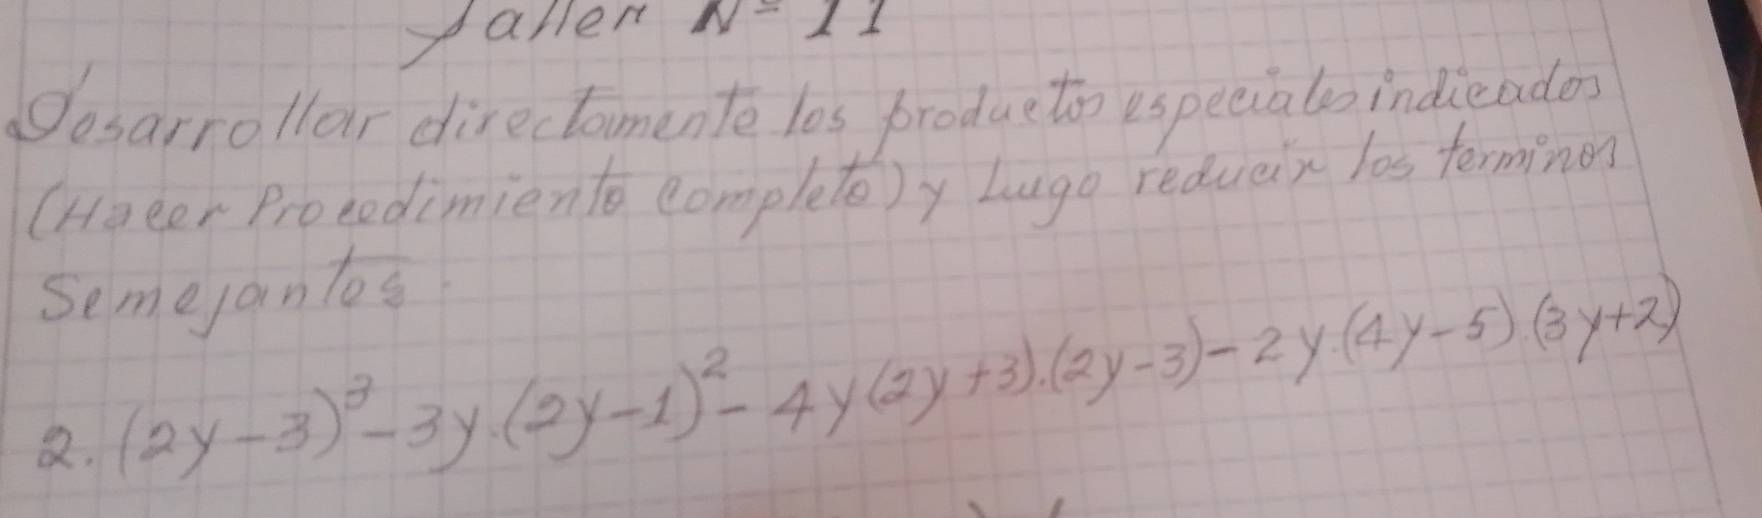 Taller Nº 11
Desarrollar directamente los productos especiales indicados
(Hacer Procedimiento completo) y Lugo reducir los terminos
Semejantes.
2. (2y-3)³-3y.(2y-1)²-4y(2y+3).(2y-3)-2y.(4y-5).(3y+2)